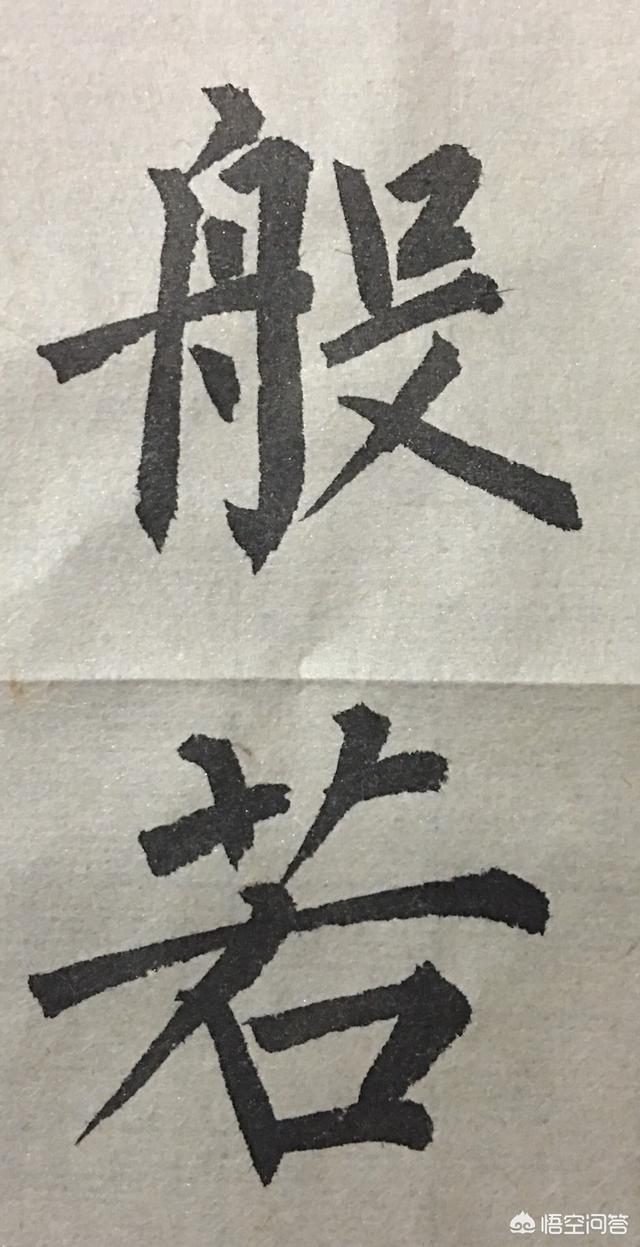 般
若
悟空问答